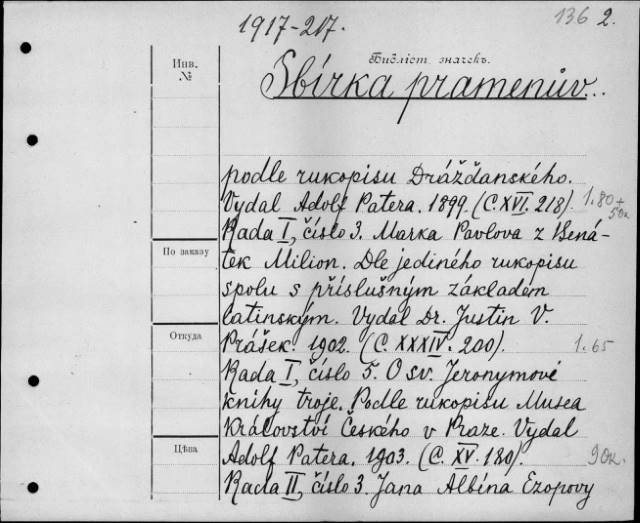 1917-217.
136 2.
Инв.
№
Библіот. значекъ.
Sbírka pramenův...
podle rukopisu Drážďanského.
Vydal Adolf Patera. 1899. (C. XVI. 218). 1.80 +
50к.
Řada I, číslo 3. Marka Pavlova z Bená-
По заказу
tek Milion. Dle jediného rukopisu
spolu s příslušným základem
latinským. Vydal Dr. Justin V.
Откуда
Prášek. 1902. (C. XXXIV. 200). 1.65
Řada I, číslo 5. O sv. Jeronymové
knihy troje. Podle rukopisu Musea
Království Českého v Praze. Vydal
Цѣна
Adolf Patera. 1903. (C. XV. 180). 90к.
Řada II, číslo 3. Jana Albína Ezopovy